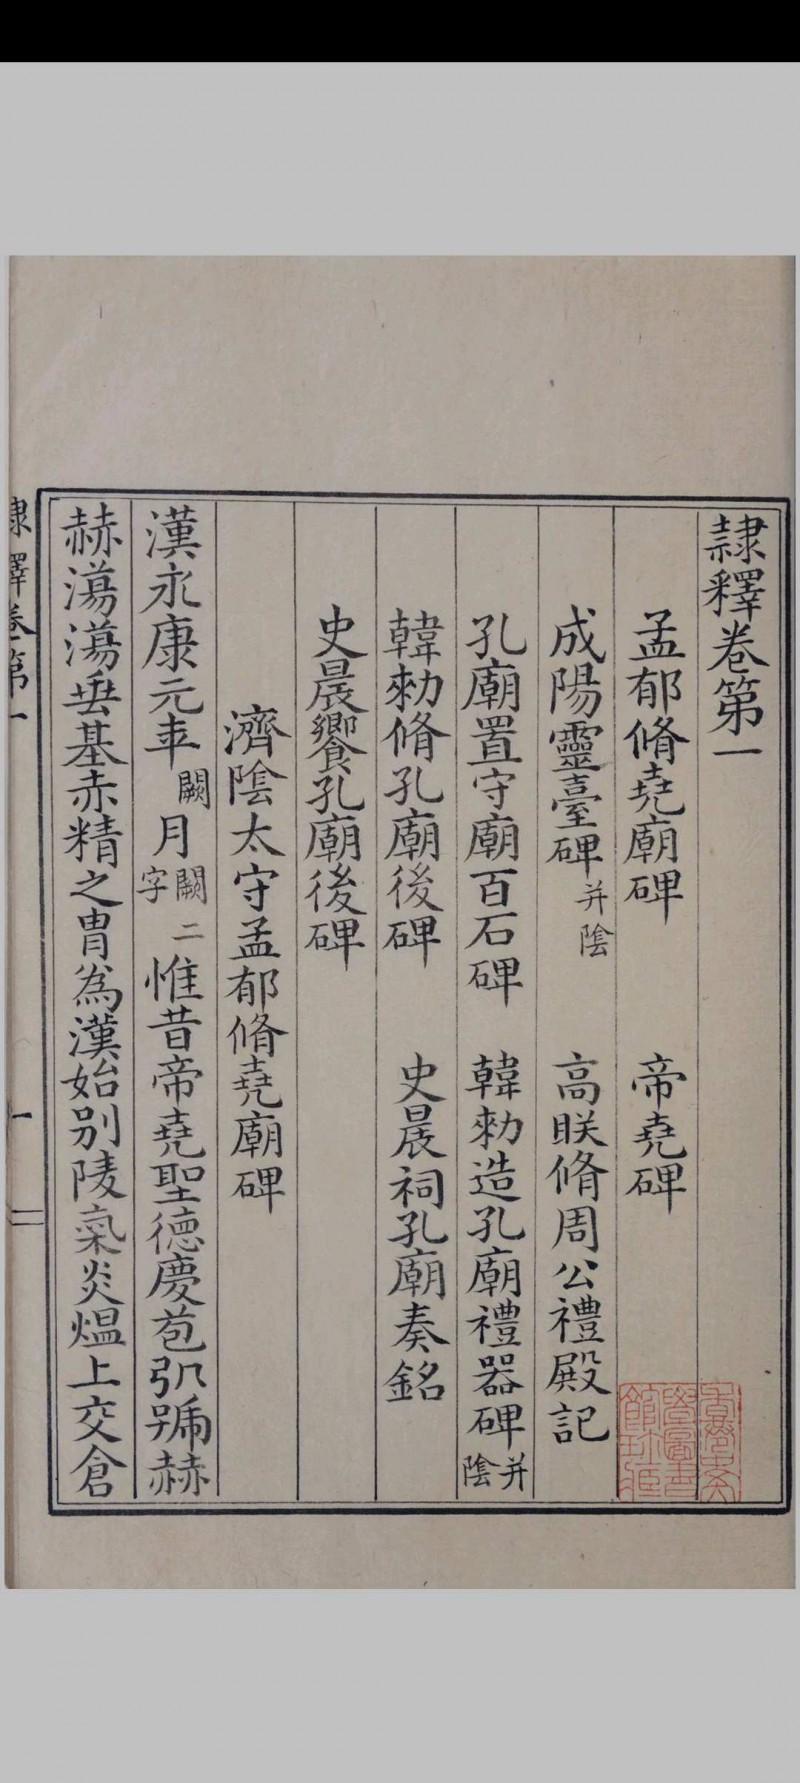 隸釋卷第一
孟郁脩堯廟碑 帝堯碑
成陽靈臺碑并陰 高眹脩周公禮殿記
孔廟置守廟百石碑 韓勑造孔廟禮器碑并陰
韓勑脩孔廟後碑 史晨祠孔廟奏銘
史晨饗孔廟後碑
濟陰太守孟郁脩堯廟碑
漢永康元年闕月闕二字惟昔帝堯聖德慶苞弘號赫
赫蕩蕩垂基赤精之胄為漢始別陵氣炎熅上交倉
隸釋卷第一
一